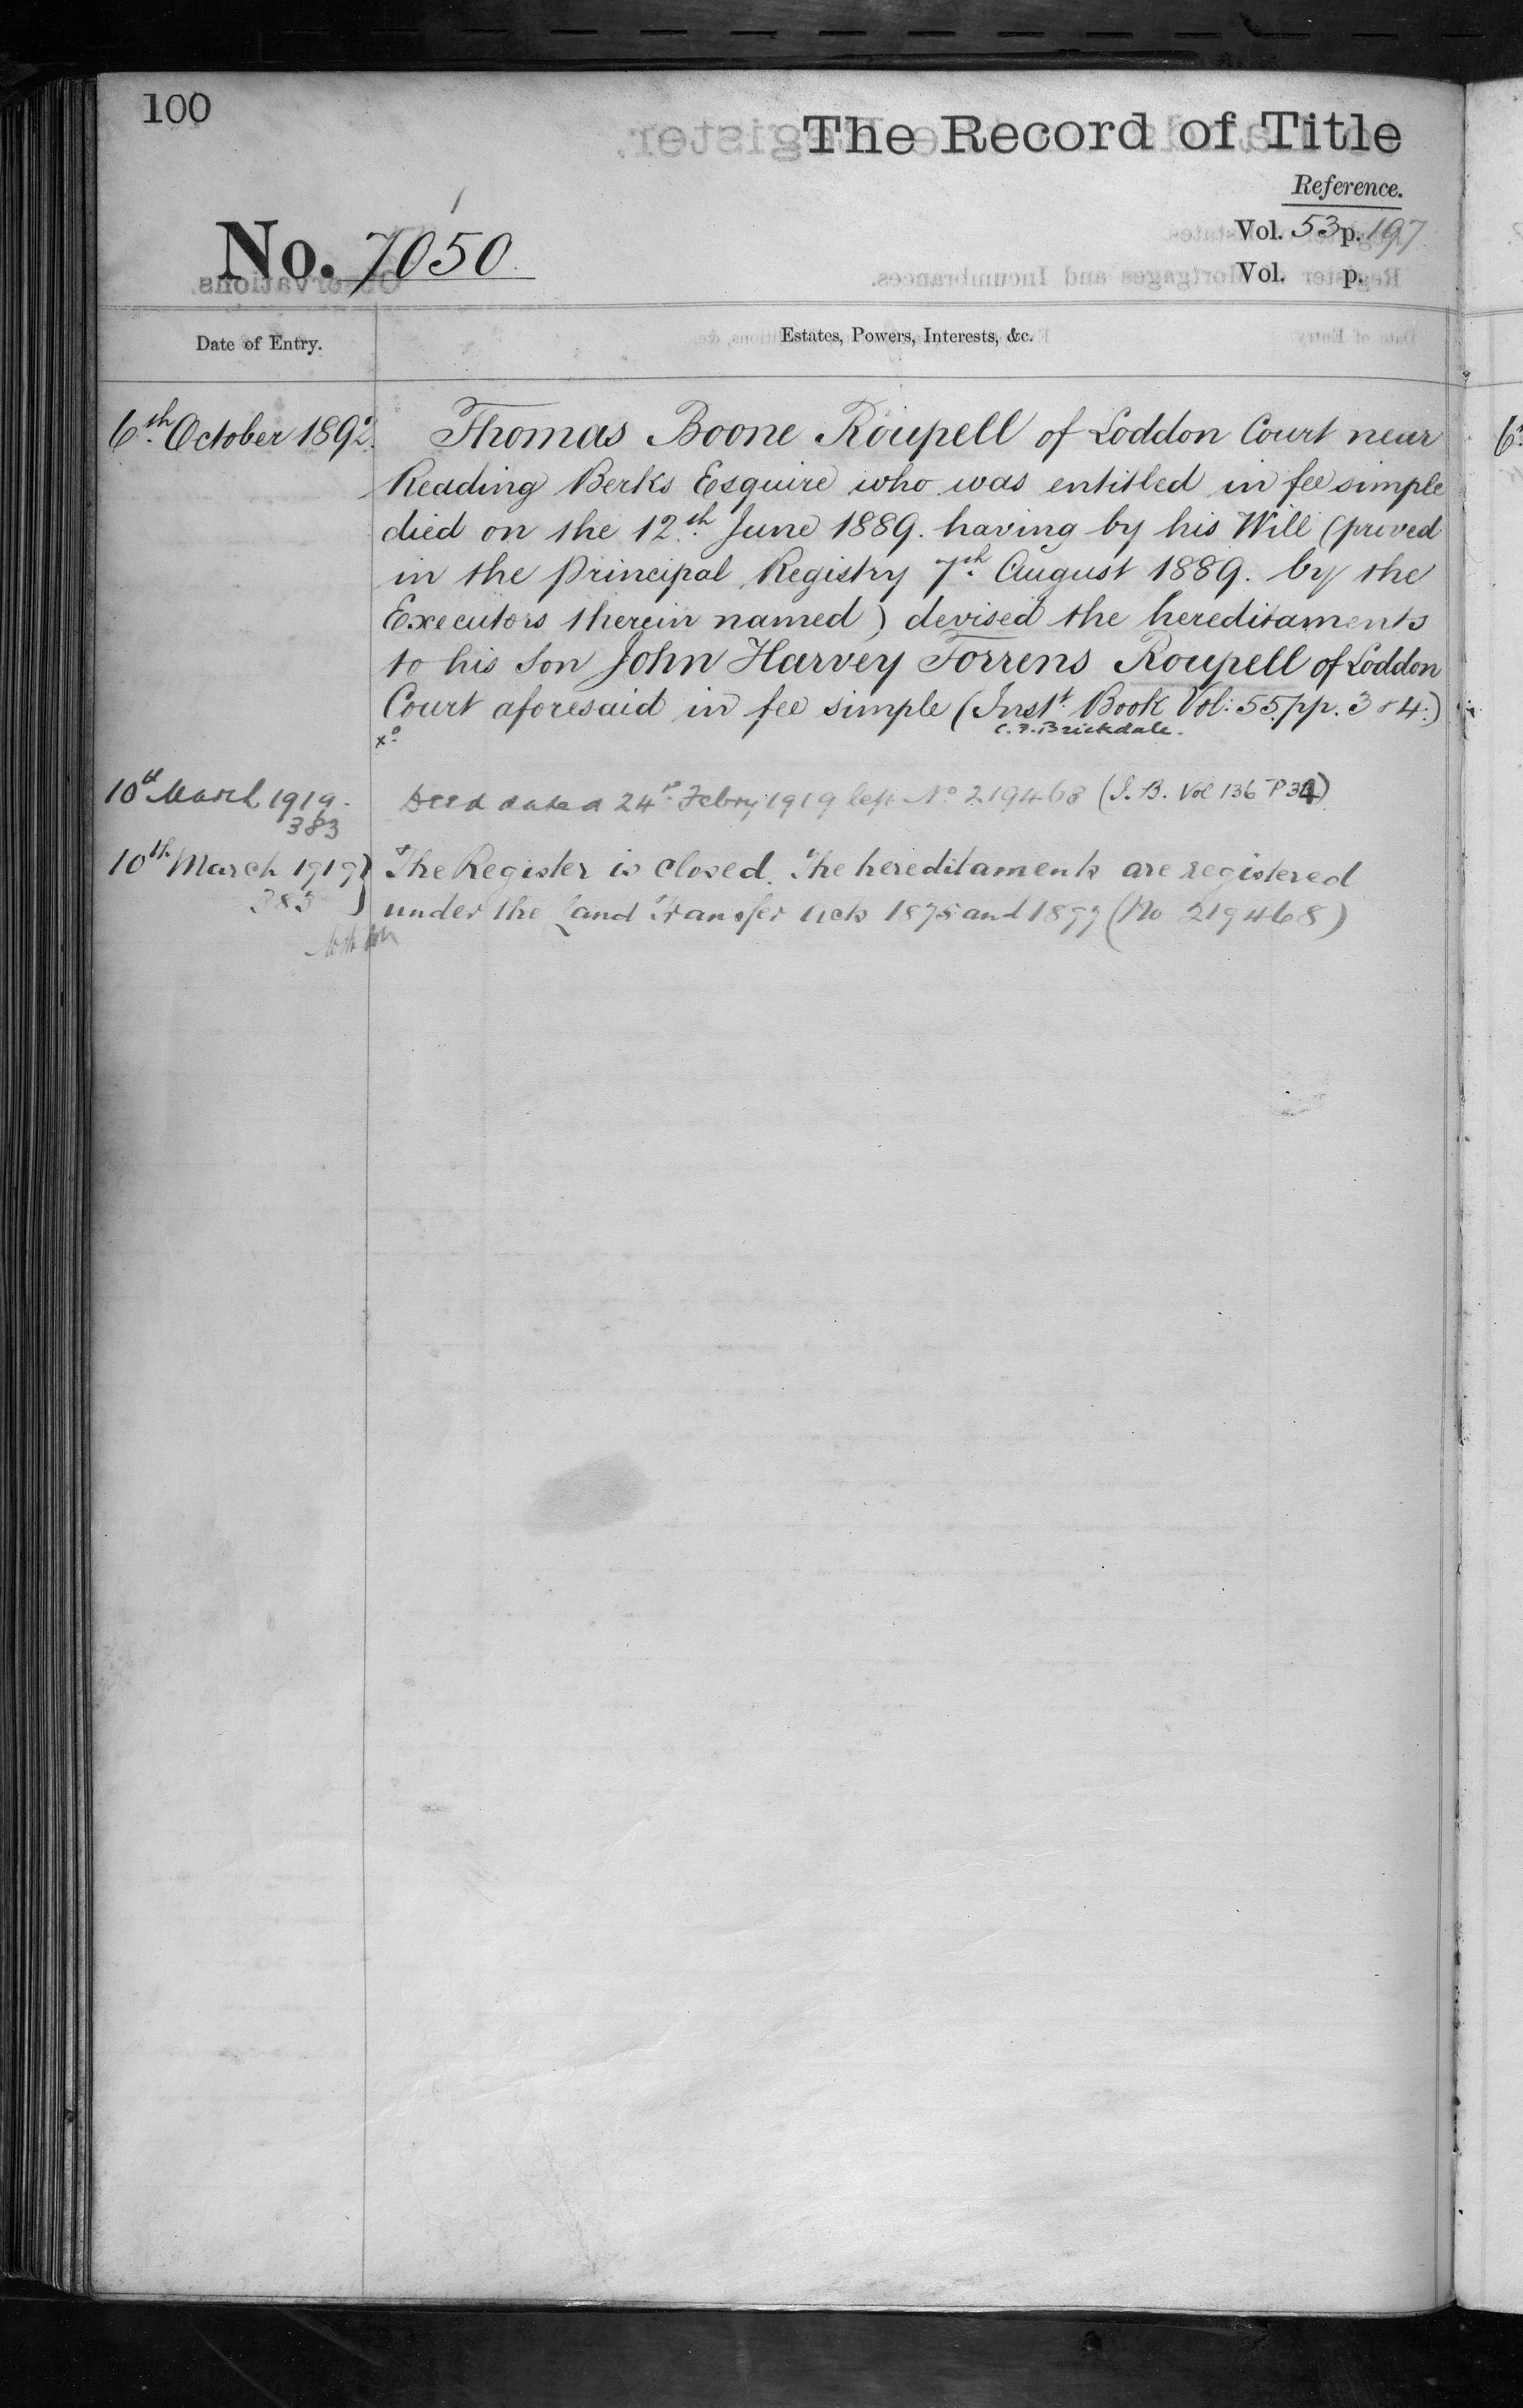 100
The Record of Title
Reference.
No. 7050
Vol. 53 p. 197
Vol. p.
Date of Entry.
Estates, Powers, Interests, &c.
6th October 1892. Thomas Boone Roupell of Loddon Court near
Reading Berks Esquire who was entitled in fee simple
died on the 12th June 1889. having by his Will (proved
in the Principal Registry 7th August 1889. by the
Executors therein named) devised the hereditaments
to his Son John Harvey Torrens Roupell of Loddon
Court aforesaid in fee simple (Inst. Book Vol: 55. pp. 3 & 4.)
C. F. Brickdale.
10th March 1919. Deed dated 24th Febry 1919 left No 219468 (I. B. Vol 136 P 34)
383
10th March 1919 } The Register is closed. The hereditaments are registered
385 under the Land Transfer Acts 1875 and 1897 (No 219468)